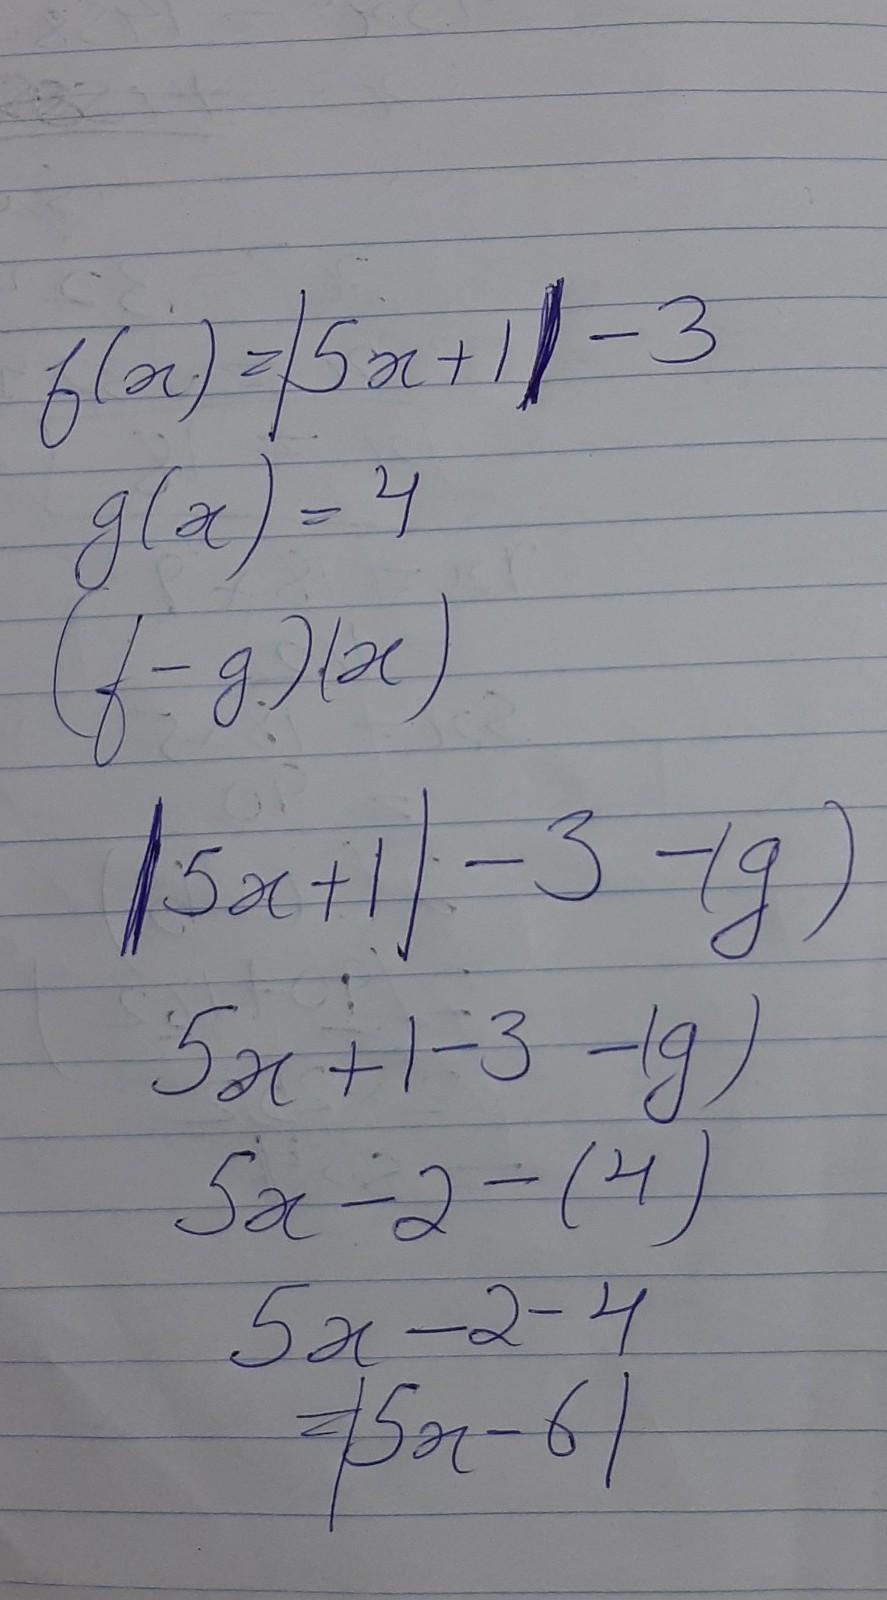 f(x) = |5x+1| - 3
g(x) = 4
(f-g)(x)
|5x+1| - 3 - (g)
5x+1-3 -(g)
5x-2-(4)
5x-2-4
=|5x-6|